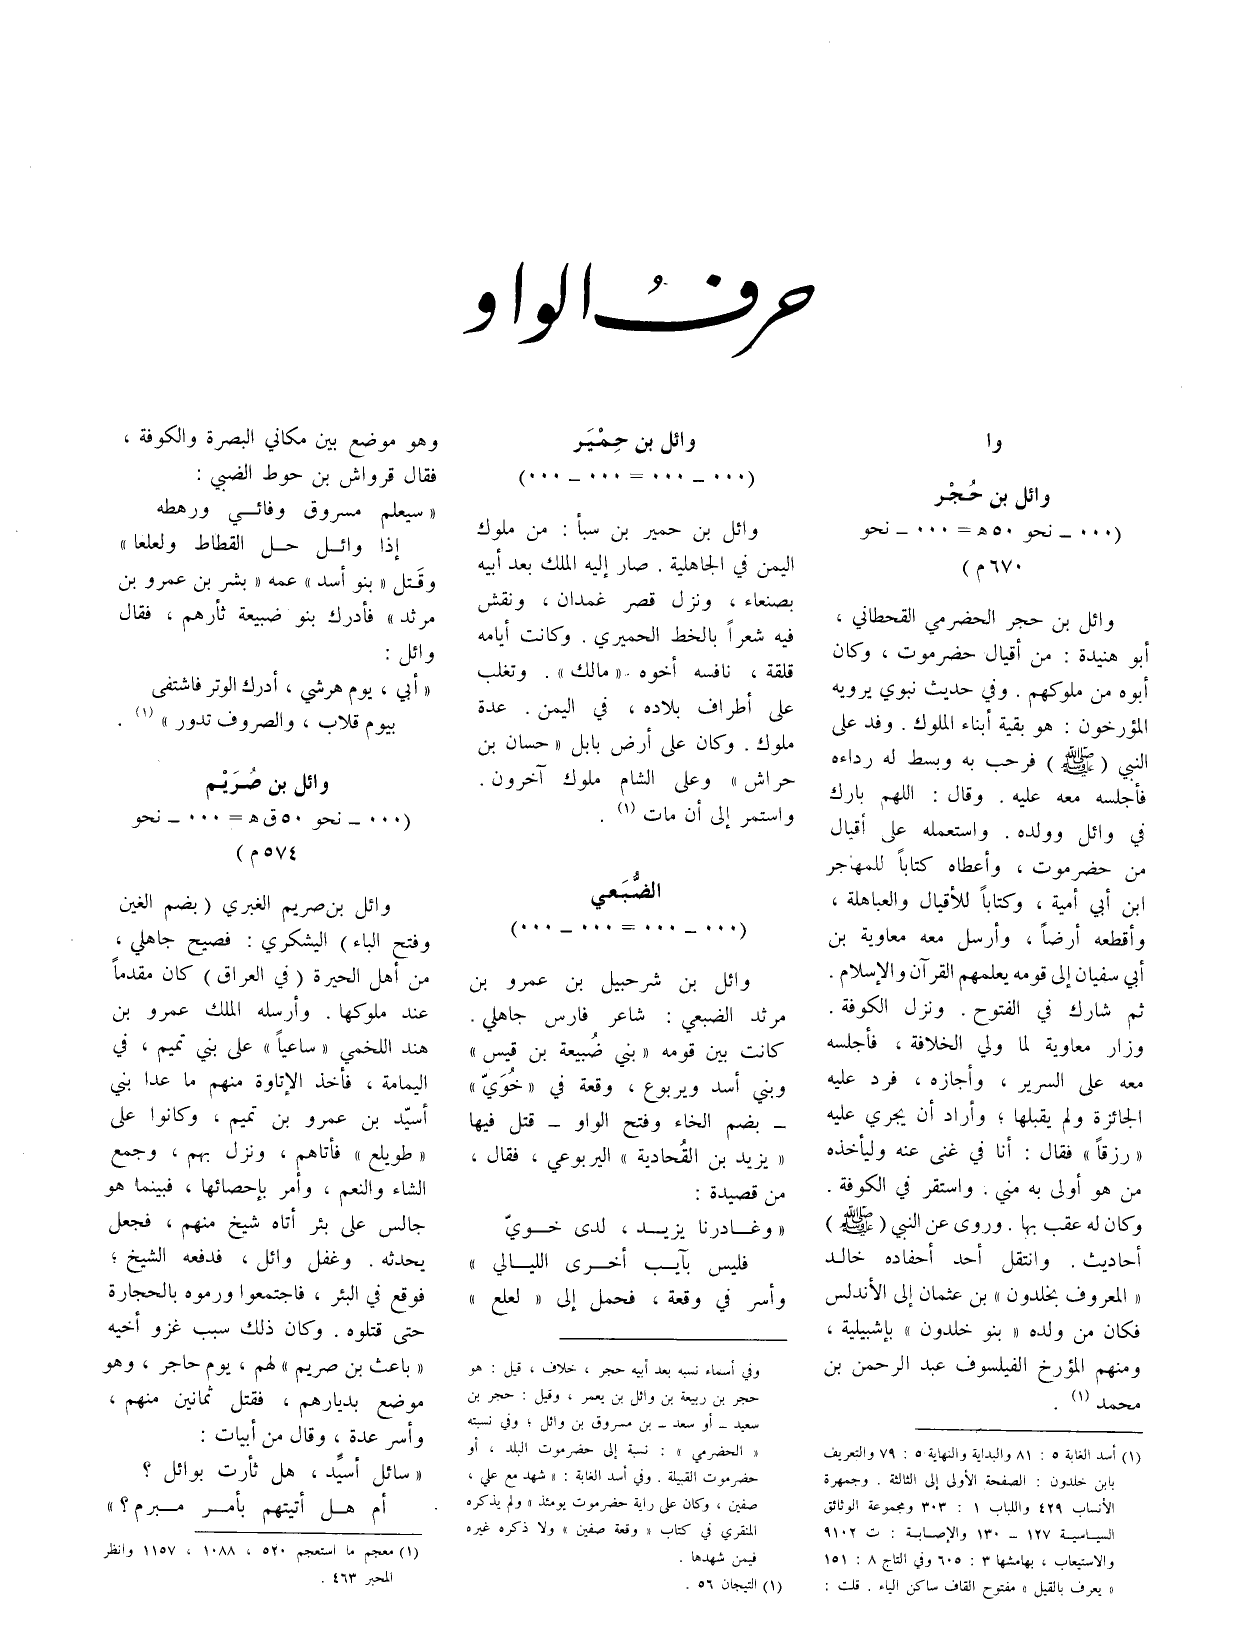 حرف الواو
وا
وائل بن حُجْر
(٠٠٠ ـ نحو ٥٠ه‍ = ٠٠٠ ـ نحو
٦٧٠م)
وائل بن حجر الحضرمي القحطاني ،
أبو هنيدة : من أقيال حضرموت ، وكان
أبوه من ملوكهم . وفي حديث نبوي يرويه
المؤرخون : هو بقية أبناء الملوك . وفد على
النبي (ﷺ) فرحب به وبسط له رداءه
فأجلسه معه عليه . وقال : اللهم بارك
في وائل وولده . واستعمله على أقيال
من حضرموت ، وأعطاه كتاباً للمهاجر
ابن أبي أمية ، وكتاباً للأقيال والعباهلة ،
وأقطعه أرضاً ، وأرسل معه معاوية بن
أبي سفيان إلى قومه يعلمهم القرآن والإسلام .
ثم شارك في الفتوح . ونزل الكوفة .
وزار معاوية لما ولي الخلافة ، فأجلسه
معه على السرير ، وأجازه ، فرد عليه
الجائزة ولم يقبلها ؛ وأراد أن يجري عليه
« رزقاً » فقال : أنا في غنى عنه وليأخذه
من هو أولى به مني . واستقر في الكوفة .
وكان له عقب بها . وروى عن النبي (ﷺ)
أحاديث . وانتقل أحد أحفاده خالد
« المعروف بخلدون » بن عثمان إلى الأندلس
فكان من ولده « بنو خلدون » بإشبيلية ،
ومنهم المؤرخ الفيلسوف عبد الرحمن بن
محمد (١) .
(١) أسد الغابة ٥ : ٨١ والبداية والنهاية ٥ : ٧٩ والتعريف
بابن خلدون : الصفحة الأولى إلى الثالثة . وجمهرة
الأنساب ٤٢٩ واللباب ١ : ٣٠٣ ومجموعة الوثائق
السياسية ١٢٧ ـ ١٣٠ والإصابة : ت ٩١٠٢
والاستيعاب ، بهامشها ٣ : ٦٠٥ وفي التاج ٨ : ١٥١
« يعرف بالقيل » مفتوح القاف ساكن الياء . قلت :
وائل بن حِمْيَر
(٠٠٠ ـ ٠٠٠ = ٠٠٠ ـ ٠٠٠)
وائل بن حمير بن سبأ : من ملوك
اليمن في الجاهلية . صار إليه الملك بعد أبيه
بصنعاء ، ونزل قصر غمدان ، ونقش
فيه شعراً بالخط الحميري . وكانت أيامه
قلقة ، نافسه أخوه « مالك » . وتغلب
على أطراف بلاده ، في اليمن . عدة
ملوك . وكان على أرض بابل « حسان بن
حراش » وعلى الشام ملوك آخرون .
واستمر إلى أن مات (١) .
الضُّبَعي
(٠٠٠ ـ ٠٠٠ = ٠٠٠ ـ ٠٠٠)
وائل بن شرحبيل بن عمرو بن
مرثد الضبعي : شاعر فارس جاهلي .
كانت بين قومه « بني ضُبيعة بن قيس »
وبني أسد ويربوع ، وقعة في « خُوَيّ »
ـ بضم الخاء وفتح الواو ـ قتل فيها
« يزيد بن القُحادية » اليربوعي ، فقال ،
من قصيدة :
« وغادرنا يزيد ، لدى خويّ
فليس بآيب أخرى الليالي »
وأسر في وقعة ، فحمل إلى « لعلع »
وفي أسماء نسبه بعد أبيه حجر ، خلاف ، قيل : هو
حجر بن ربيعة بن وائل بن يعمر ، وقيل : حجر بن
سعيد ـ أو سعد ـ بن مسروق بن وائل ؛ وفي نسبته
« الحضرمي » : نسبة إلى حضرموت البلد ، أو
حضرموت القبيلة . وفي أسد الغابة : « شهد مع علي ،
صفين ، وكان على راية حضرموت يومئذ » ولم يذكره
المنقري في كتاب « وقعة صفين » ولا ذكره غيره
فيمن شهدها .
(١) التيجان ٥٦ .
وهو موضع بين مكاني البصرة والكوفة ،
فقال قرواش بن حوط الضبي :
« سيعلم مسروق وفائي ورهطه
إذا وائل حل القطاط ولعلعا »
وقَتل « بنو أسد » عمه « بشر بن عمرو بن
مرثد » فأدرك بنو ضبيعة ثأرهم ، فقال
وائل :
« أبي ، يوم هرشي ، أدرك الوتر فاشتفى
بيوم قلاب ، والصروف تدور » (١) .
وائل بن صُرَيْم
(٠٠٠ ـ نحو ٥٠ق‍ه‍ = ٠٠٠ ـ نحو
٥٧٤م)
وائل بن صريم الغبري ( بضم الغين
وفتح الباء ) اليشكري : فصيح جاهلي ،
من أهل الحيرة ( في العراق ) كان مقدماً
عند ملوكها . وأرسله الملك عمرو بن
هند اللخمي « ساعياً » على بني تميم ، في
اليمامة ، فأخذ الإتاوة منهم ما عدا بني
أسيّد بن عمرو بن تميم ، وكانوا على
« طويلع » فأتاهم ، ونزل بهم ، وجمع
الشاء والنعم ، وأمر بإحصائها ، فبينما هو
جالس على بئر أتاه شيخ منهم ، فجعل
يحدثه . وغفل وائل ، فدفعه الشيخ ؛
فوقع في البئر ، فاجتمعوا ورموه بالحجارة
حتى قتلوه . وكان ذلك سبب غزو أخيه
« باعث بن صريم » لهم ، يوم حاجر ، وهو
موضع بديارهم ، فقتل ثمانين منهم ،
وأسر عدة ، وقال من أبيات :
« سائل أسيِّد ، هل ثأرت بوائل ؟
أم هل أتيتهم بأمر مبرم ؟ »
(١) معجم ما استعجم ٥٢٠ ، ١٠٨٨ ، ١١٥٧ وانظر
المحبر ٤٦٣ .